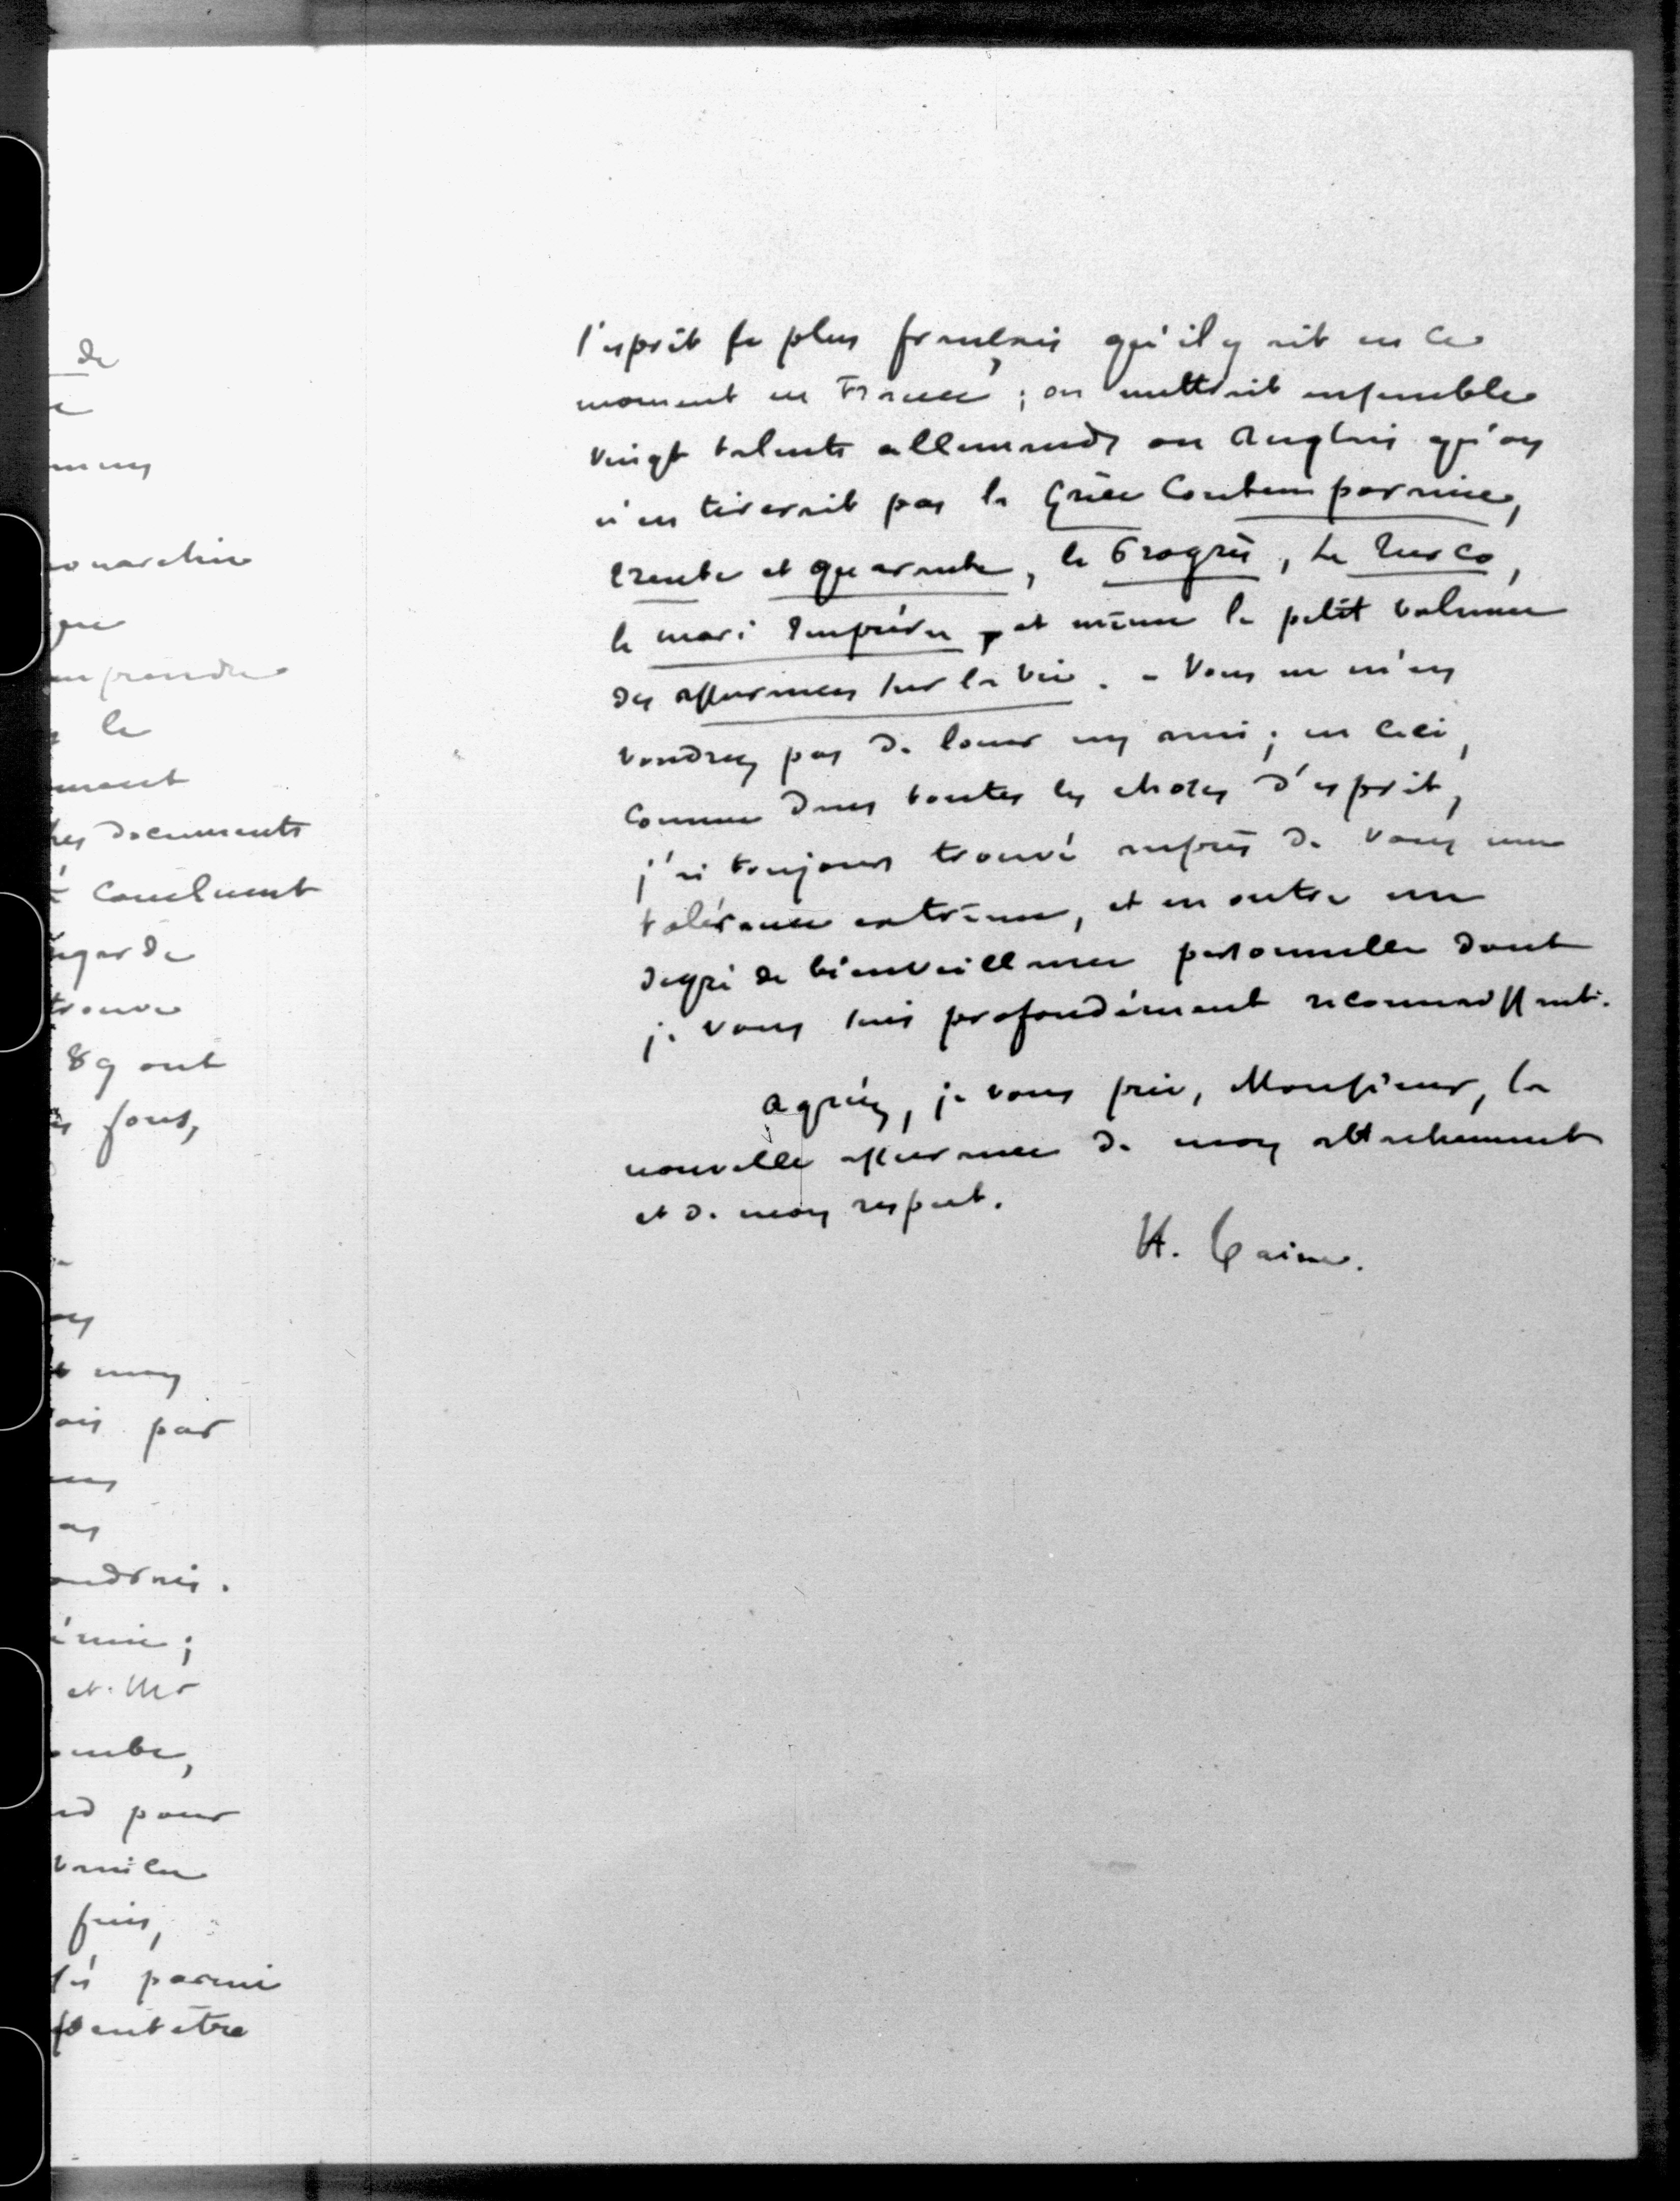 de
monarchie
que
le
documents
concluent
regarde
trouve
89 ont
font,
mon
par
et Mr
pour
fin,
parmi
peut être
l'esprit le plus français qu'il y ait en ce
moment en France ; on mettrait ensemble
vingt talents allemands ou Anglais qu'on
n'en tirerait pas la Grèce Contemporaine,
trente et quarante, le Progrès, Le Turco,
le mari Imprévu, et même le petit volume
des assurances sur la vie. - Vous ne m'en
voudrez pas de louer un ami ; en ceci,
comme dans toutes les choses d'esprit,
j'ai toujours trouvé auprès de vous une
tolérance extrême, et en outre un
degré de bienveillance personnelle dont
je vous suis profondément reconnaissant.
Agréez, je vous prie, Monsieur, la
nouvelle assurance de mon attachement
et de mon respect.
H. Taine.